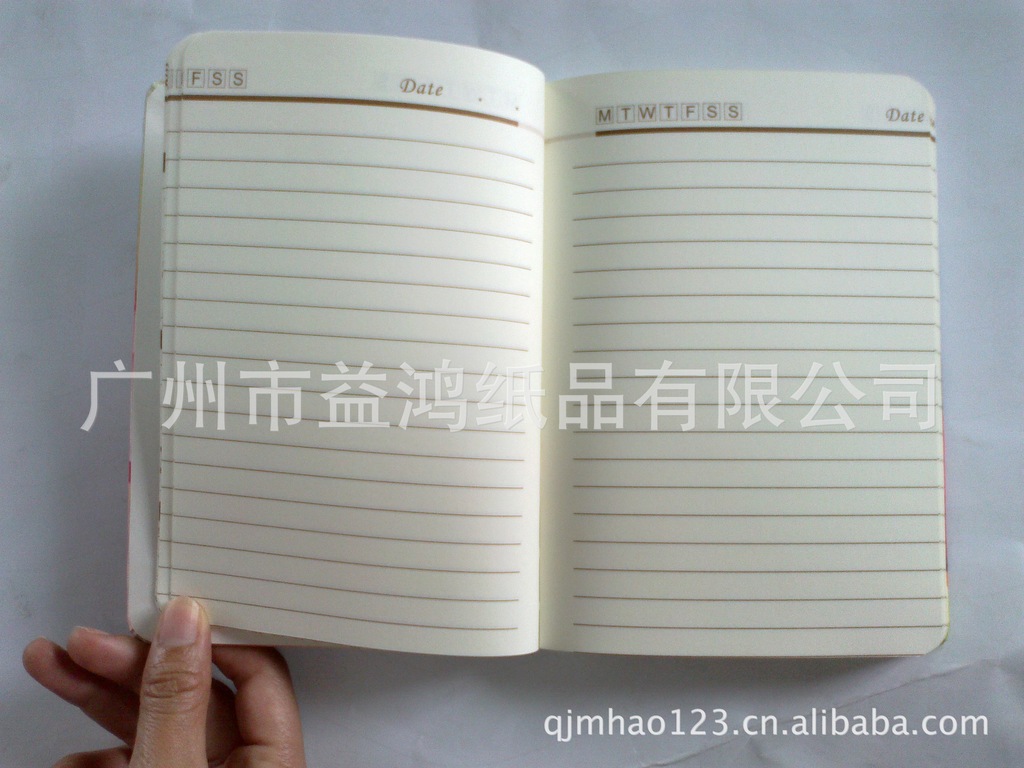 F S S
Date
M T W T F S S
Date
广州市益鸿纸品有限公司
qjmhao123.cn.alibaba.com